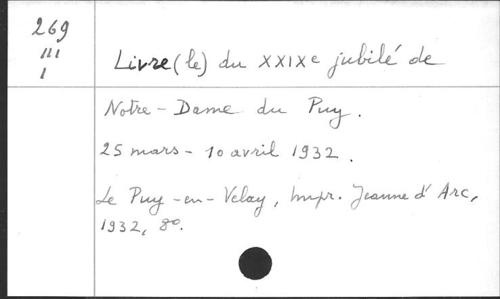 269
III
1
Livre (le) du XXIXe jubilé de
Notre-Dame du Puy.
25 mars - 10 avril 1932.
Le Puy-en-Velay, Impr. Jeanne d'Arc,
1932, 8o.